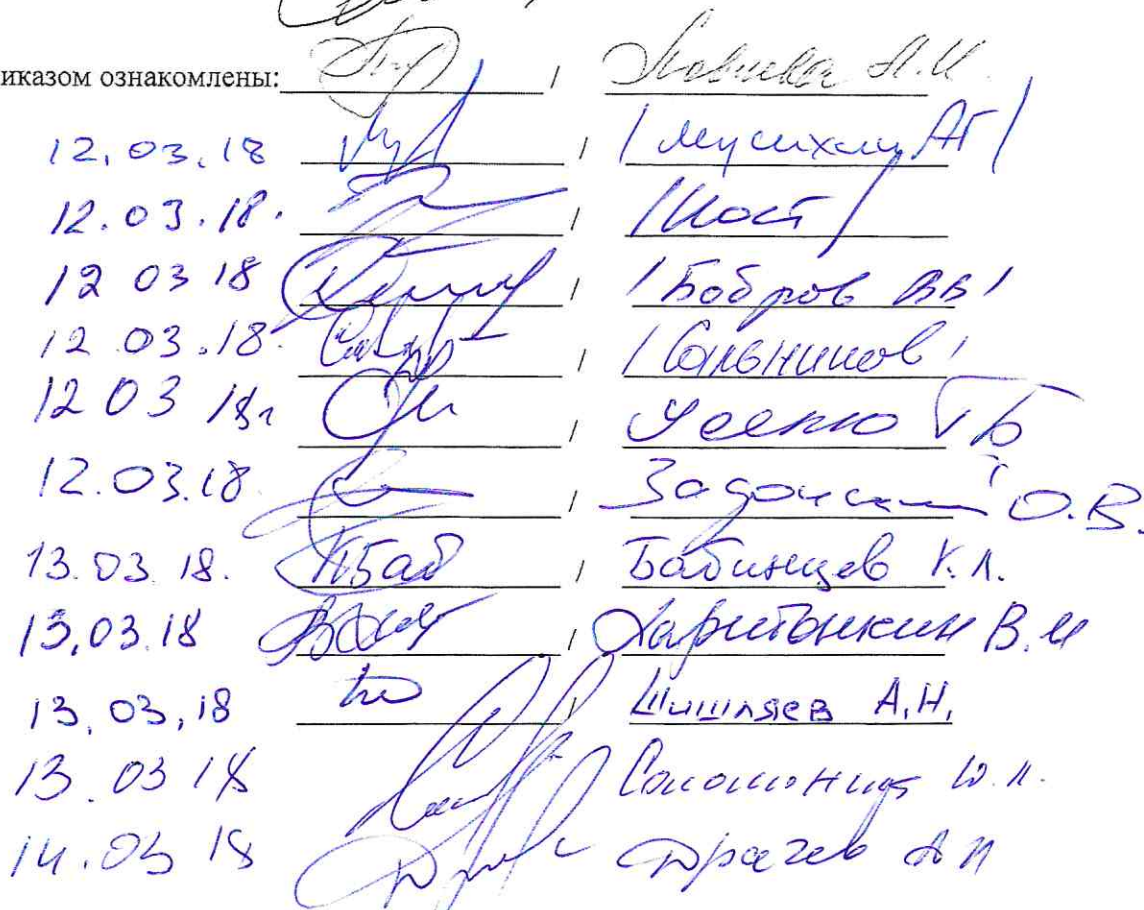 иказом ознакомлены: / А.И.
12.03.18 / / Мусихин АГ /
12.03.18. / / Кост /
12 03 18 / / Бобров ВВ /
12.03.18. / / Сальников /
12 03 18г / Усенко ГБ
12.03.18. / Задонский О.В.
13.03.18. / Бабинцев К.Л.
13.03.18 / Харитонкин В.И
13.03,18 / Шишляев А.Н.
13.03 18 Ю.Л.
14.03 18 Драчев АП